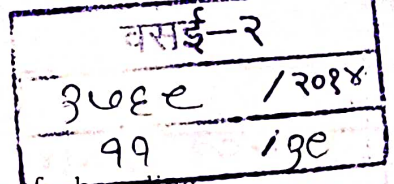 वसई-२
३७६९ /२०१४
११ /३९